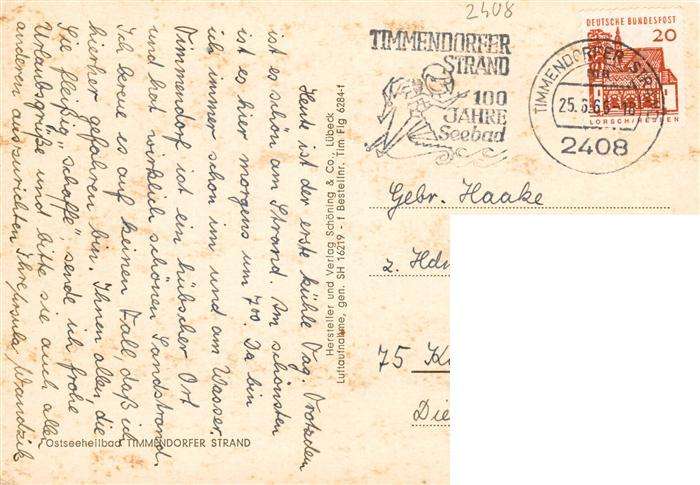 2408
TIMMENDORFER
STRAND
100
JAHRE
Seebad
DEUTSCHE BUNDESPOST
20
LORSCH/HESSEN
TIMMENDORFER STR
25.6.6
2408
Heute ist der erste kühle Tag. Trotzdem
ist es schön am Strand. Am schönsten
ist es hier morgens um 7⁰⁰. Da bin
ich immer schon im und am Wasser.
Timmendorf ist ein hübscher Ort
und hat wirklich schönen Sandstrand.
Ich bereue es auf keinen Fall, daß ich
hierher gefahren bin. Ihnen allen, die
Sie fleißig "schaffe", sende ich frohe
Urlaubsgrüße und bitte sie auch allen
anderen auszurichten Ihre Ursula
Ostseeheilbad TIMMENDORFER STRAND
Hersteller und Verlag Schöning & Co., Lübeck
Luftaufnahme, gen. SH 16219 - 1 Bestellnr. Tim Flg 6284-1
Gebr. Haake
z. Hdn
75 K
Die